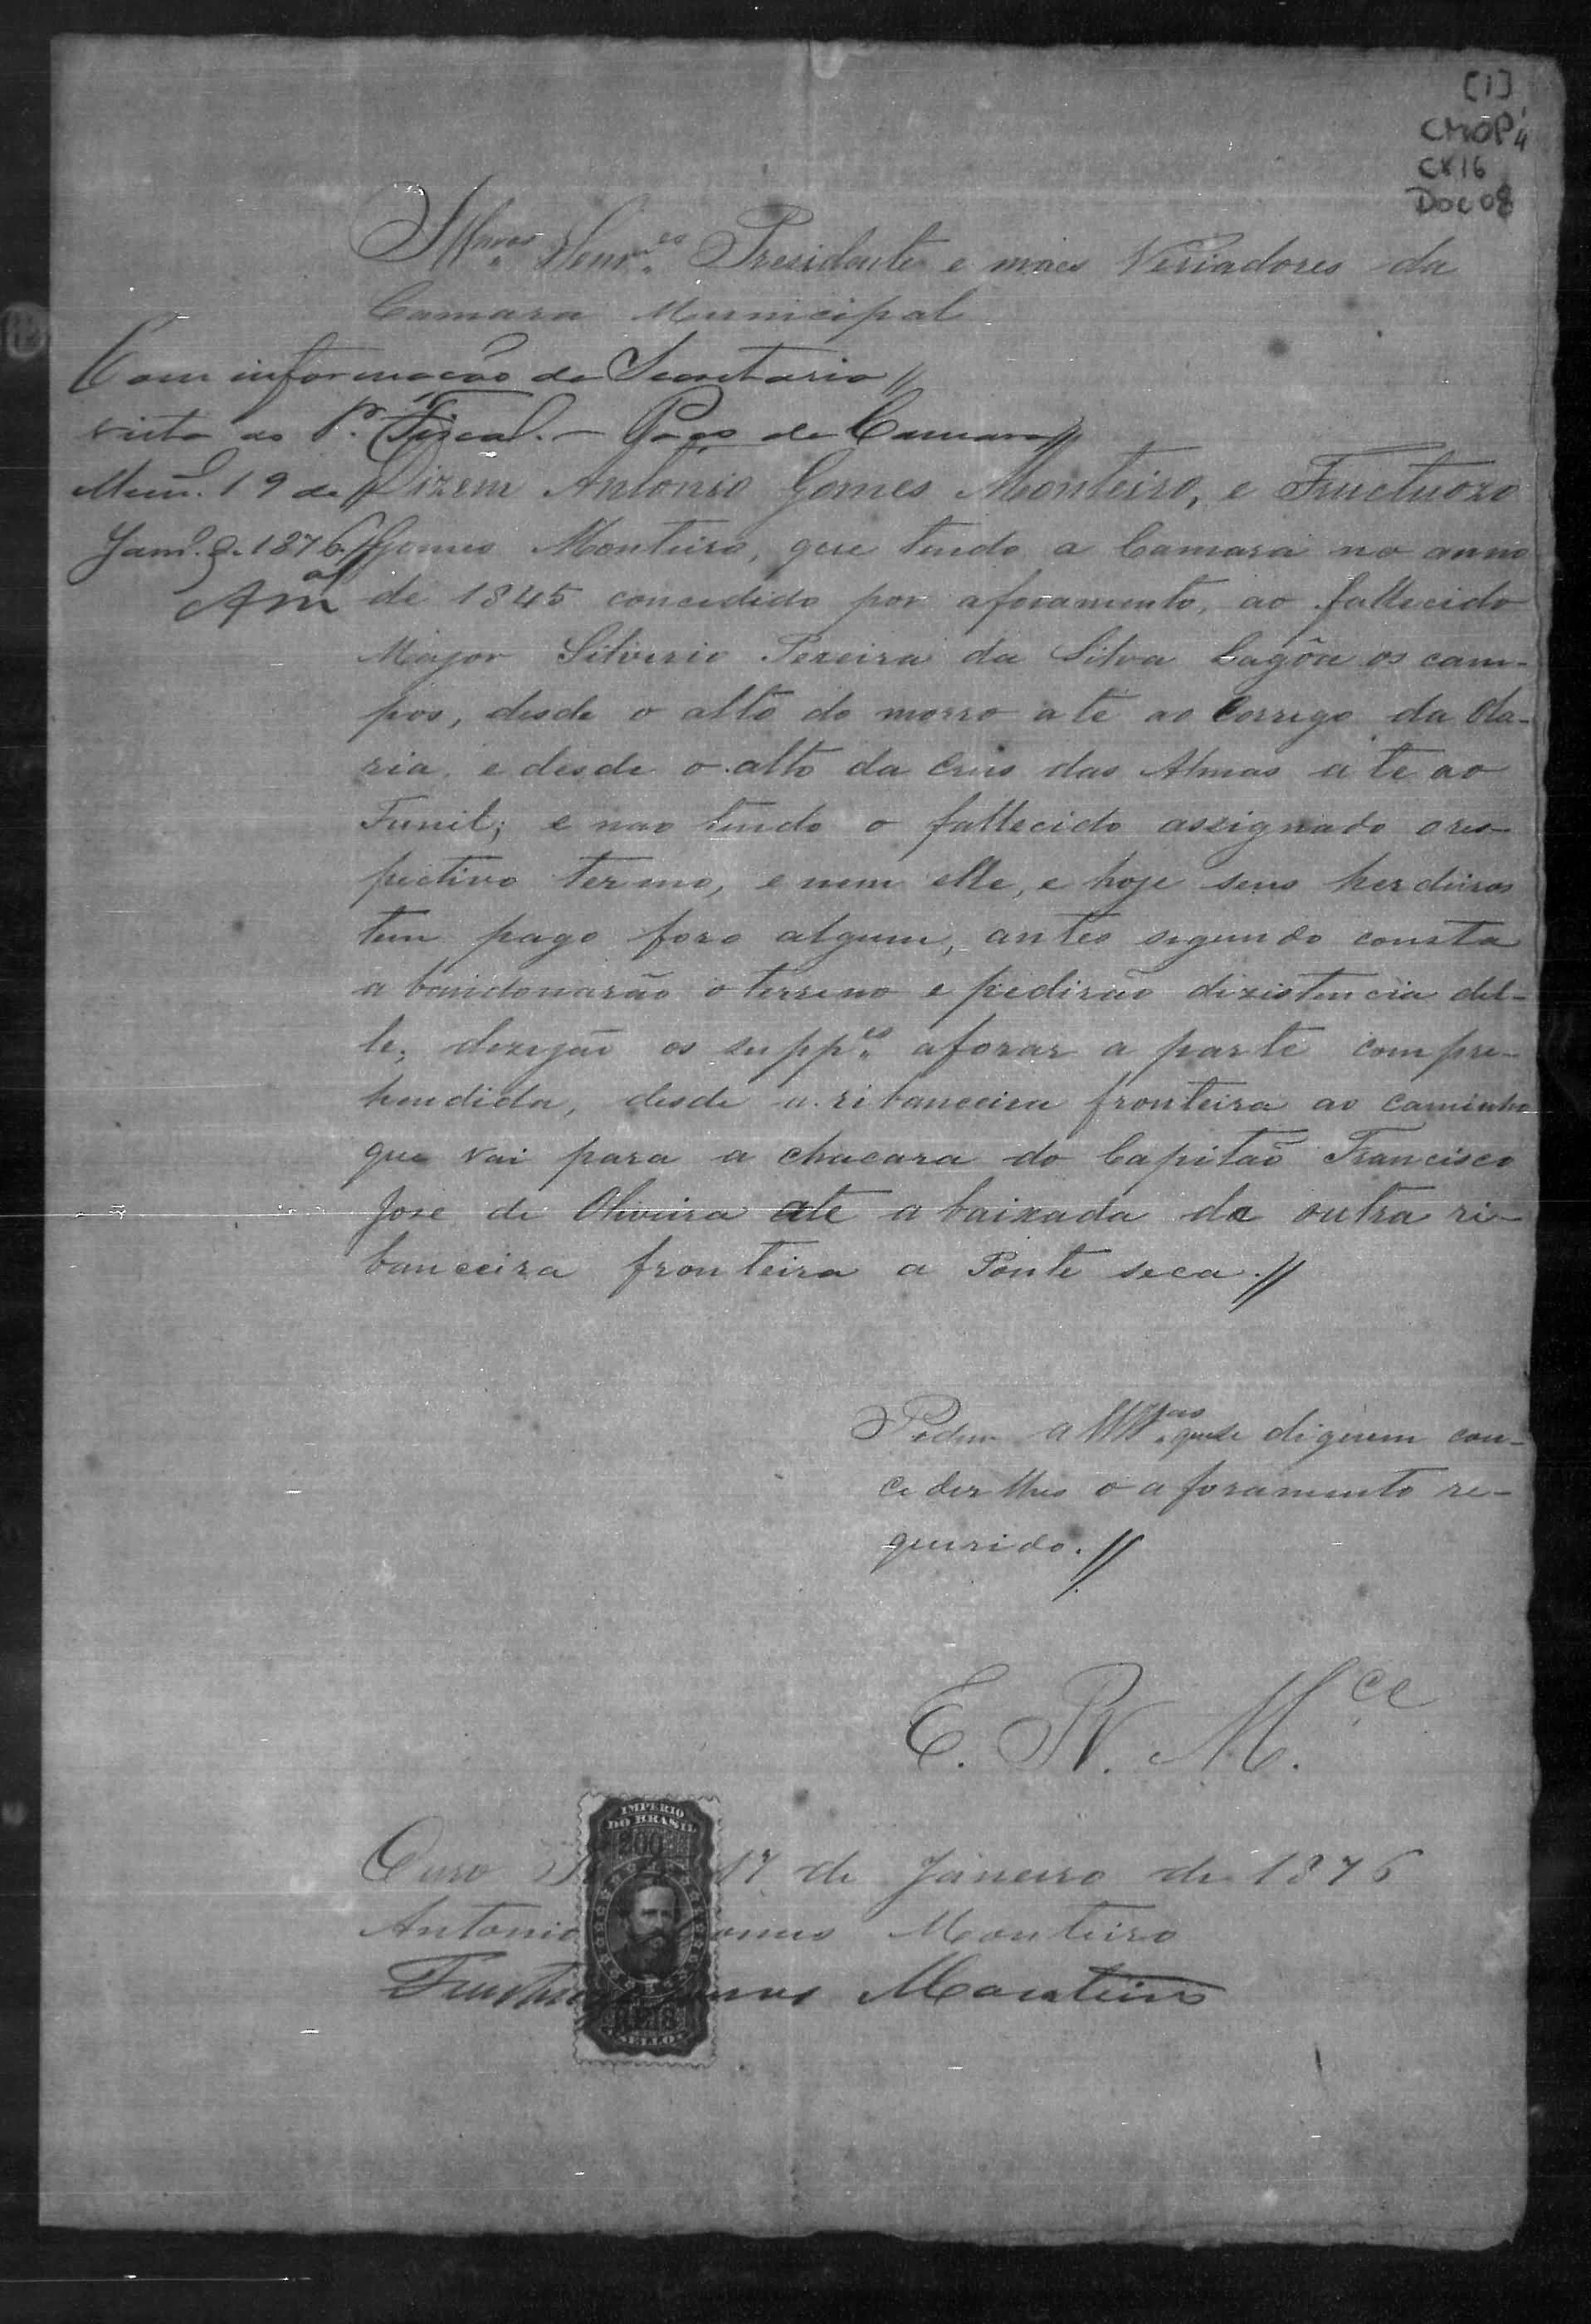 [1]
CMOP 4
CX 16
Doc 08
Illmos. Senres. Presidente e mais Veriadores da
Camara Municipal
Com informação do Secretario //
vista ao Pr. Fiscal. — Paço da Camara //
Mun.al 19 de
Janro. d. 1876. //
Am.al
Dizem Antonio Gomes Monteiro, e Fructuozo
Gomes Monteiro, que tendo a Camara no anno
de 1845 concedido por aforamento, ao fallecido
Major Silverio Pereira da Silva Lagôa os cam-
pos, desde o alto do morro até ao Corrego da Ola-
ria, e desde o alto da Crus das Almas até ao
Funil; e nao tendo o fallecido assignado o res-
pectivo termo, e nem elle, e hoje seus herdeiros
tem pago foro algum, antes segundo consta
abandonarão o terreno e pedirão dizistencia del-
le; dezejão os suppes. aforar a parte compre-
hendida, desde a ribanceira fronteira ao caminho
que vai para a chacara do Capitão Francisco
Jose de Oliveira ate a baixada da outra ri-
banceira fronteira a Ponte seca. //
Pedem a VVSas. que se dignem con-
ceder lhes o aforamento re-
querido. //
E. R. M.ce
IMPERIO
DO BRASIL
200
Ouro 17 de Janeiro de 1876
Antonio Gomes Monteiro
Fructuozo Gomes Monteiro
REIS
SELLO